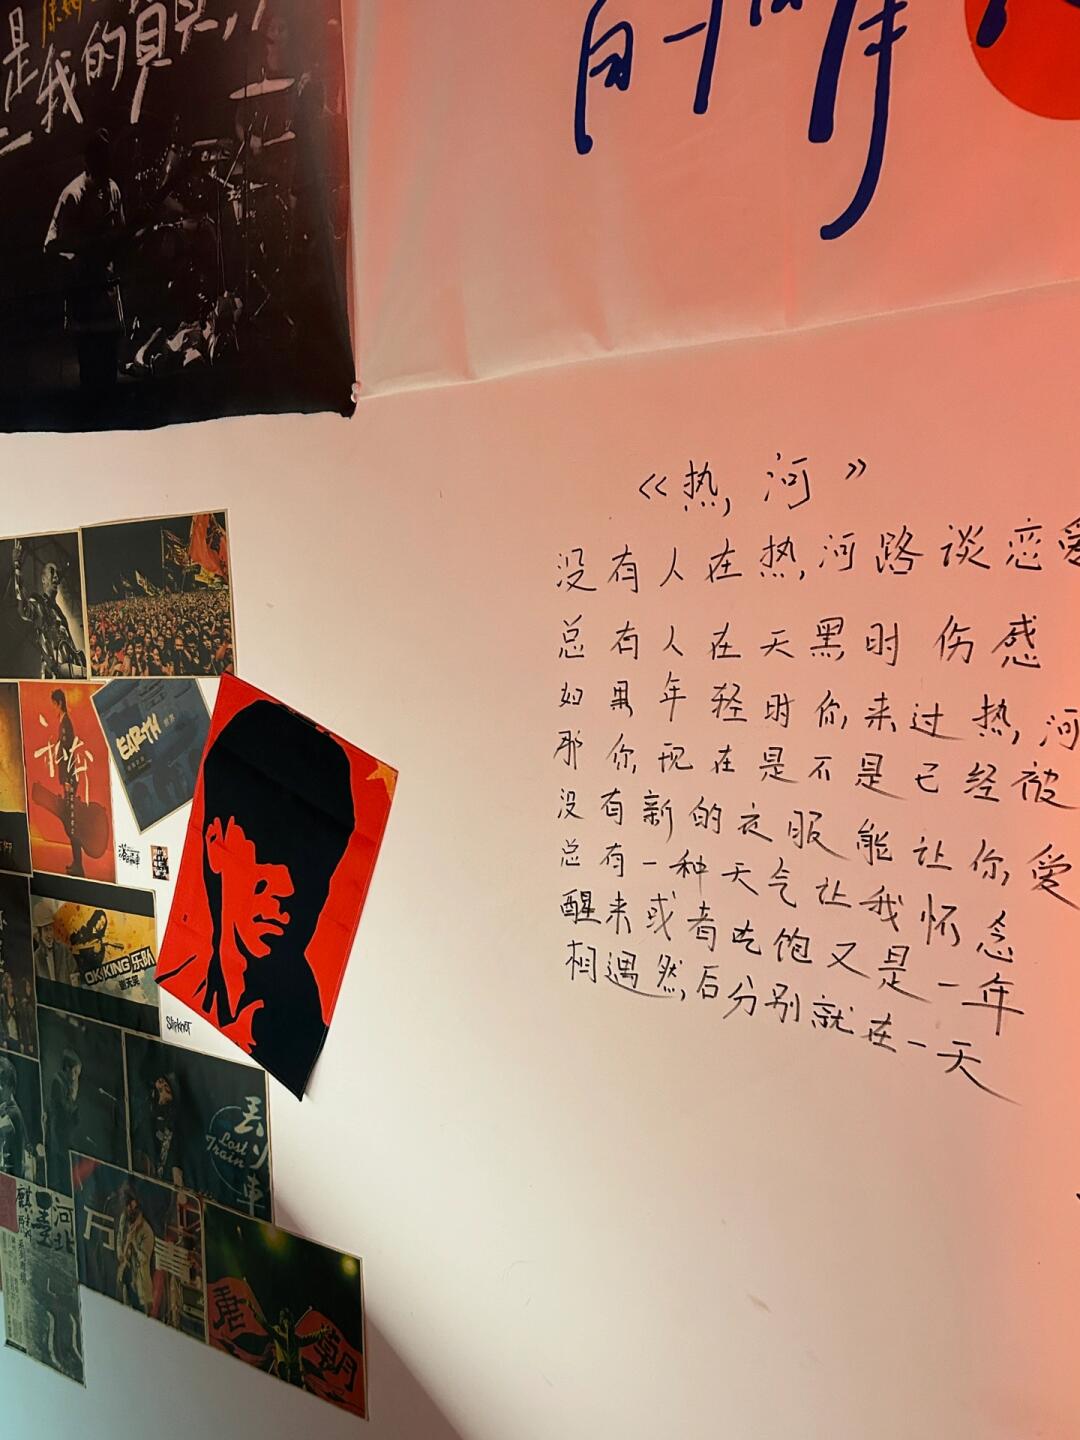 是我的
《热河》
没有人在热河路谈恋爱
总有人在天黑时伤感
如果年轻时你来过热河
那你现在是不是已经被
没有新的衣服能让你爱
总有一种天气让我怀念
醒来或者吃饱又是一年
相遇然后分别就在一天
私奔
EARTH
OK KING 乐队
Slipknot
丢火車
Lost Train
麒麟
河北
万
青
唐
朝